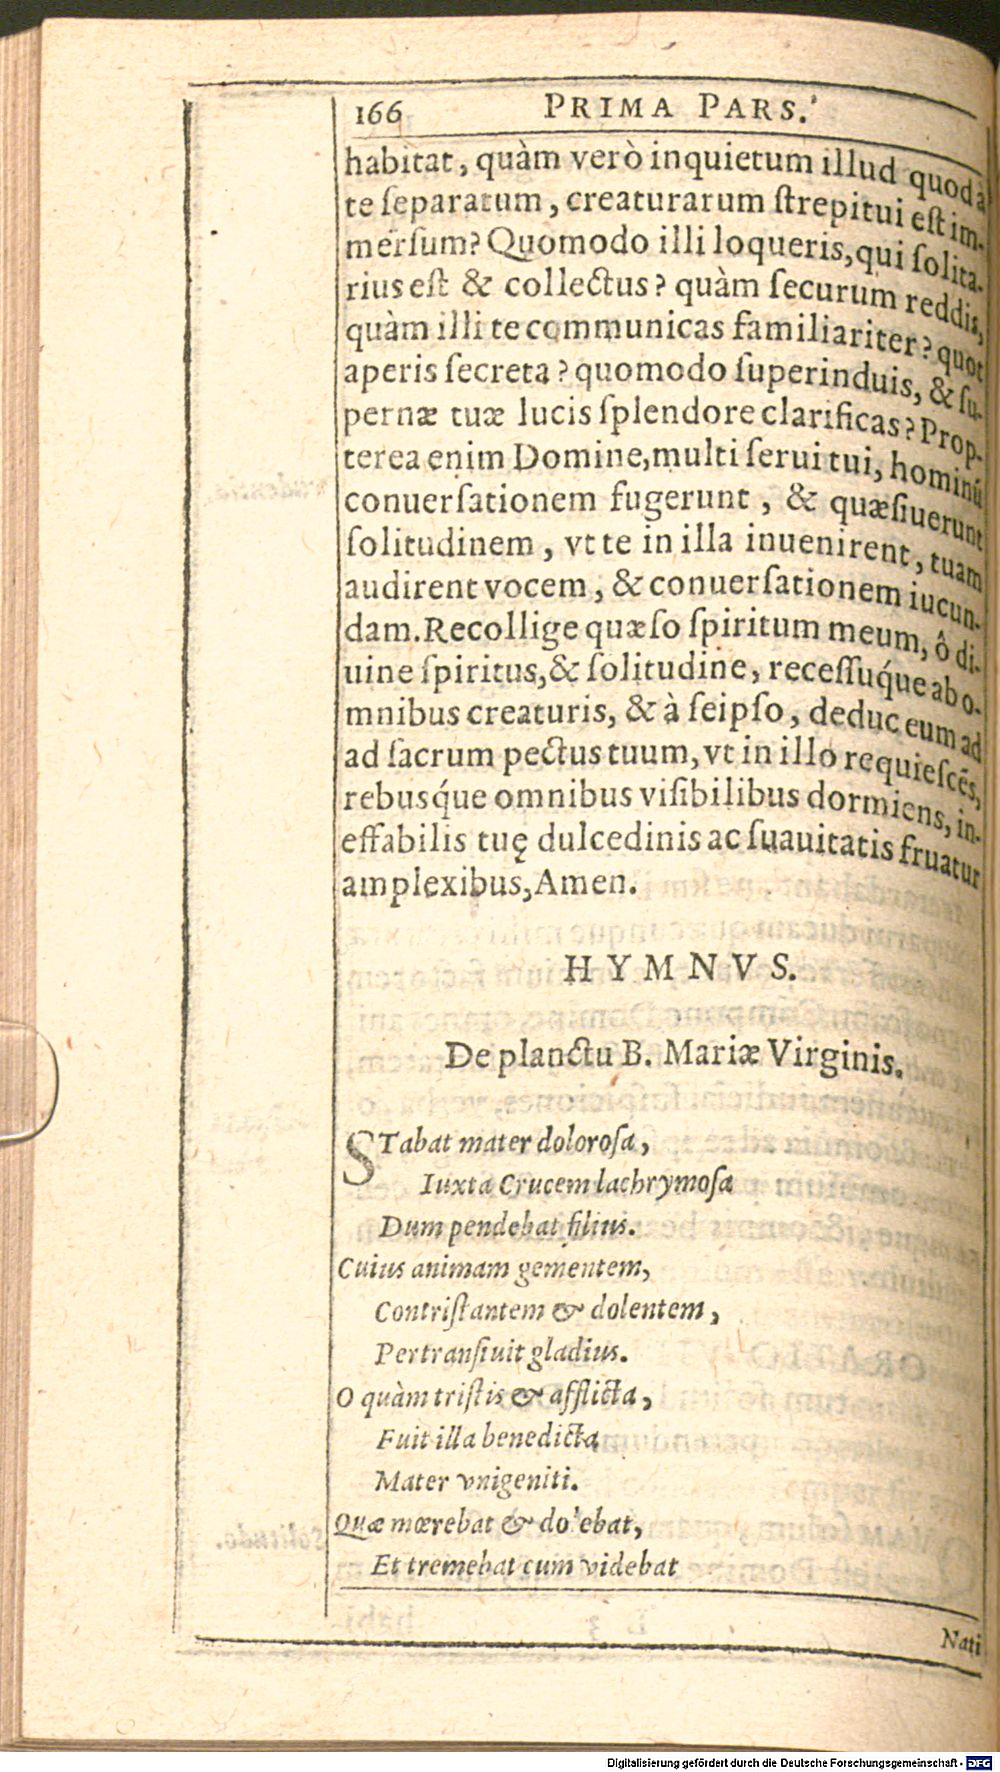 166 PRIMA PARS.
habitat, quàm verò inquietum illud quod à
te ſeparatum, creaturarum ſtrepitui eſt im-
merſum? Quomodo illi loqueris, qui ſolita-
rius eſt & collectus? quàm ſecurum reddis,
quàm illi te communicas familiariter? quot
aperis ſecreta? quomodo ſuperinduis, & ſu-
pernæ tuæ lucis ſplendore clarificas? Prop-
terea enim Domine, multi ſerui tui, hominũ
conuerſationem fugerunt, & quæſiuerunt
ſolitudinem, vt te in illa inuenirent, tuam
audirent vocem, & conuerſationem iucun-
dam. Recollige quæſo ſpiritum meum, ô di-
uine ſpiritus, & ſolitudine, receſſuq́ue ab o-
mnibus creaturis, & à ſeipſo, deduc eum ad
ad ſacrum pectus tuum, vt in illo requieſcẽs,
rebusq́ue omnibus viſibilibus dormiens, in-
effabilis tuę dulcedinis ac ſuauitatis fruatur
amplexibus, Amen.
HYMNVS.
De planctu B. Mariæ Virginis.
STabat mater doloroſa,
Iuxta Crucem lachrymoſa
Dum pendebat filius.
Cuius animam gementem,
Contriſtantem & dolentem,
Pertranſiuit gladius.
O quàm triſtis & afflicta,
Fuit illa benedicta
Mater vnigeniti.
Quæ mœrebat & dolebat,
Et tremebat cum videbat
Nati
Digitalisierung gefördert durch die Deutsche Forschungsgemeinschaft - DFG